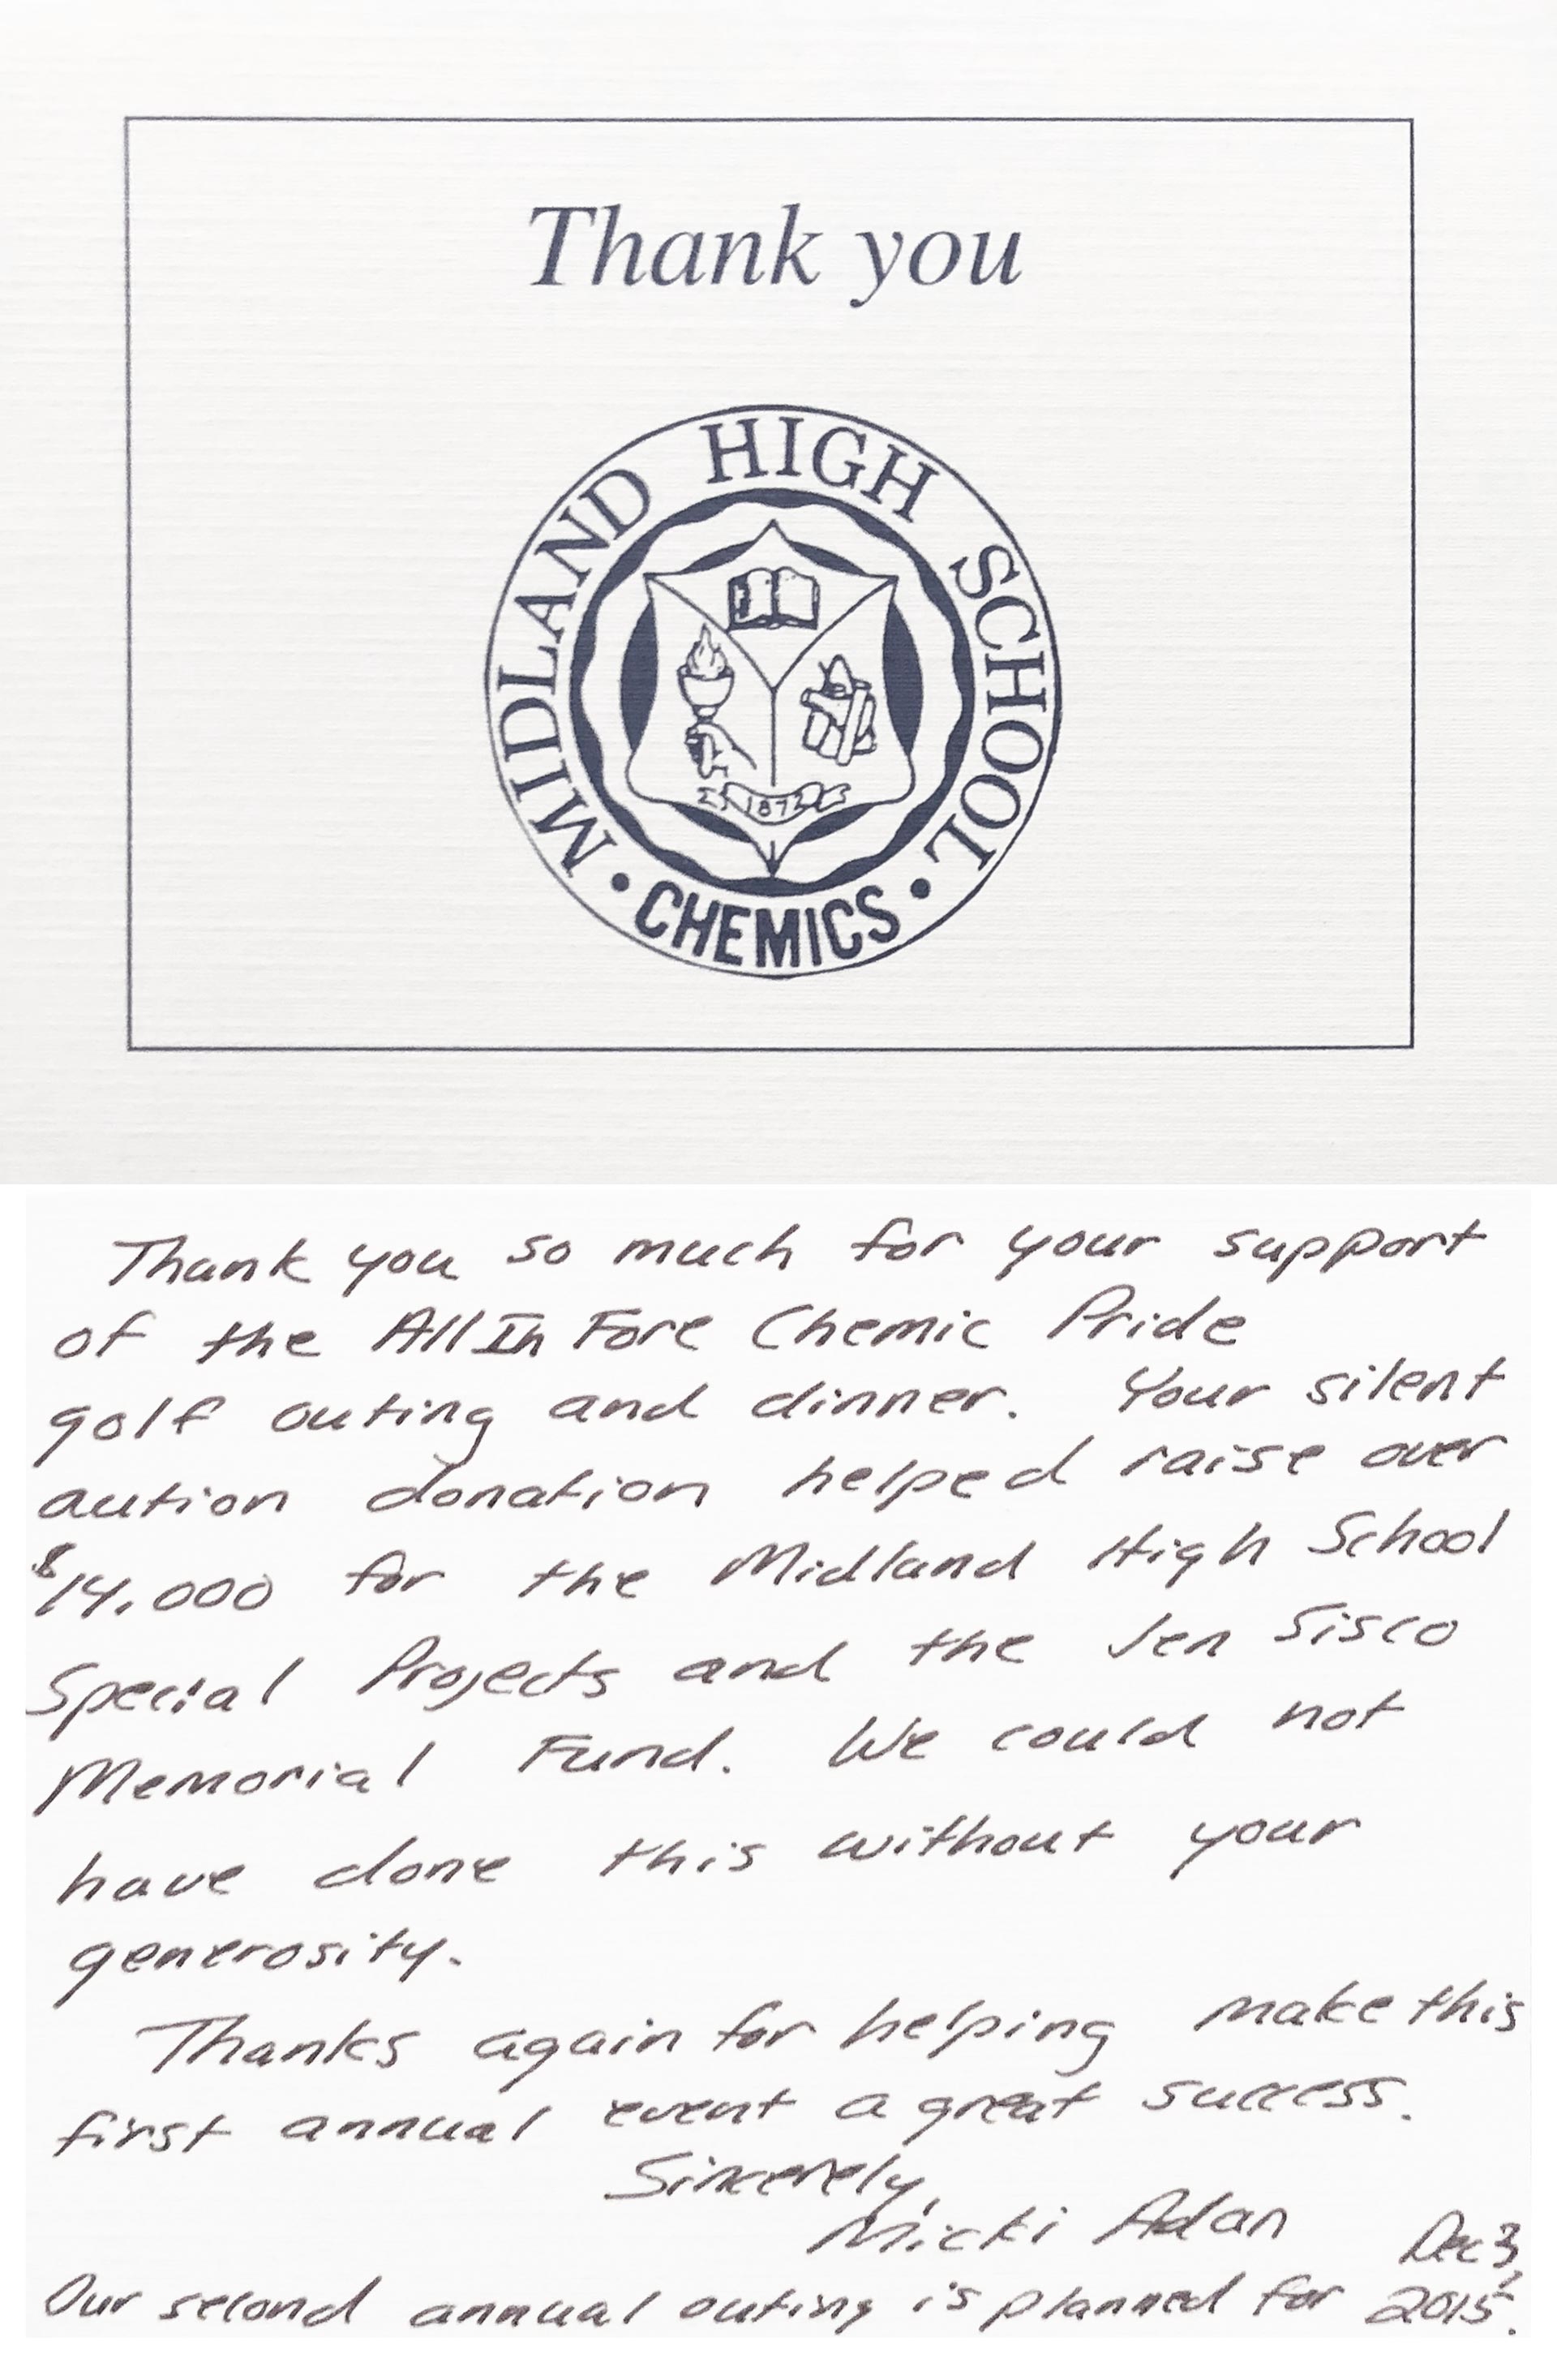 Thank you
MIDLAND HIGH SCHOOL
1872
• CHEMICS •
Thank you so much for your support
of the All In Fore Chemic Pride
golf outing and dinner. Your silent
aution donation helped raise over
$14,000 for the Midland High School
Special Projects and the Jen Sisco
Memorial Fund. We could not
have done this without your
generosity.
Thanks again for helping make this
first annual event a great success.
Sincerely,
Micki Adan
Dec 3,
Our second annual outing is planned for 2015.